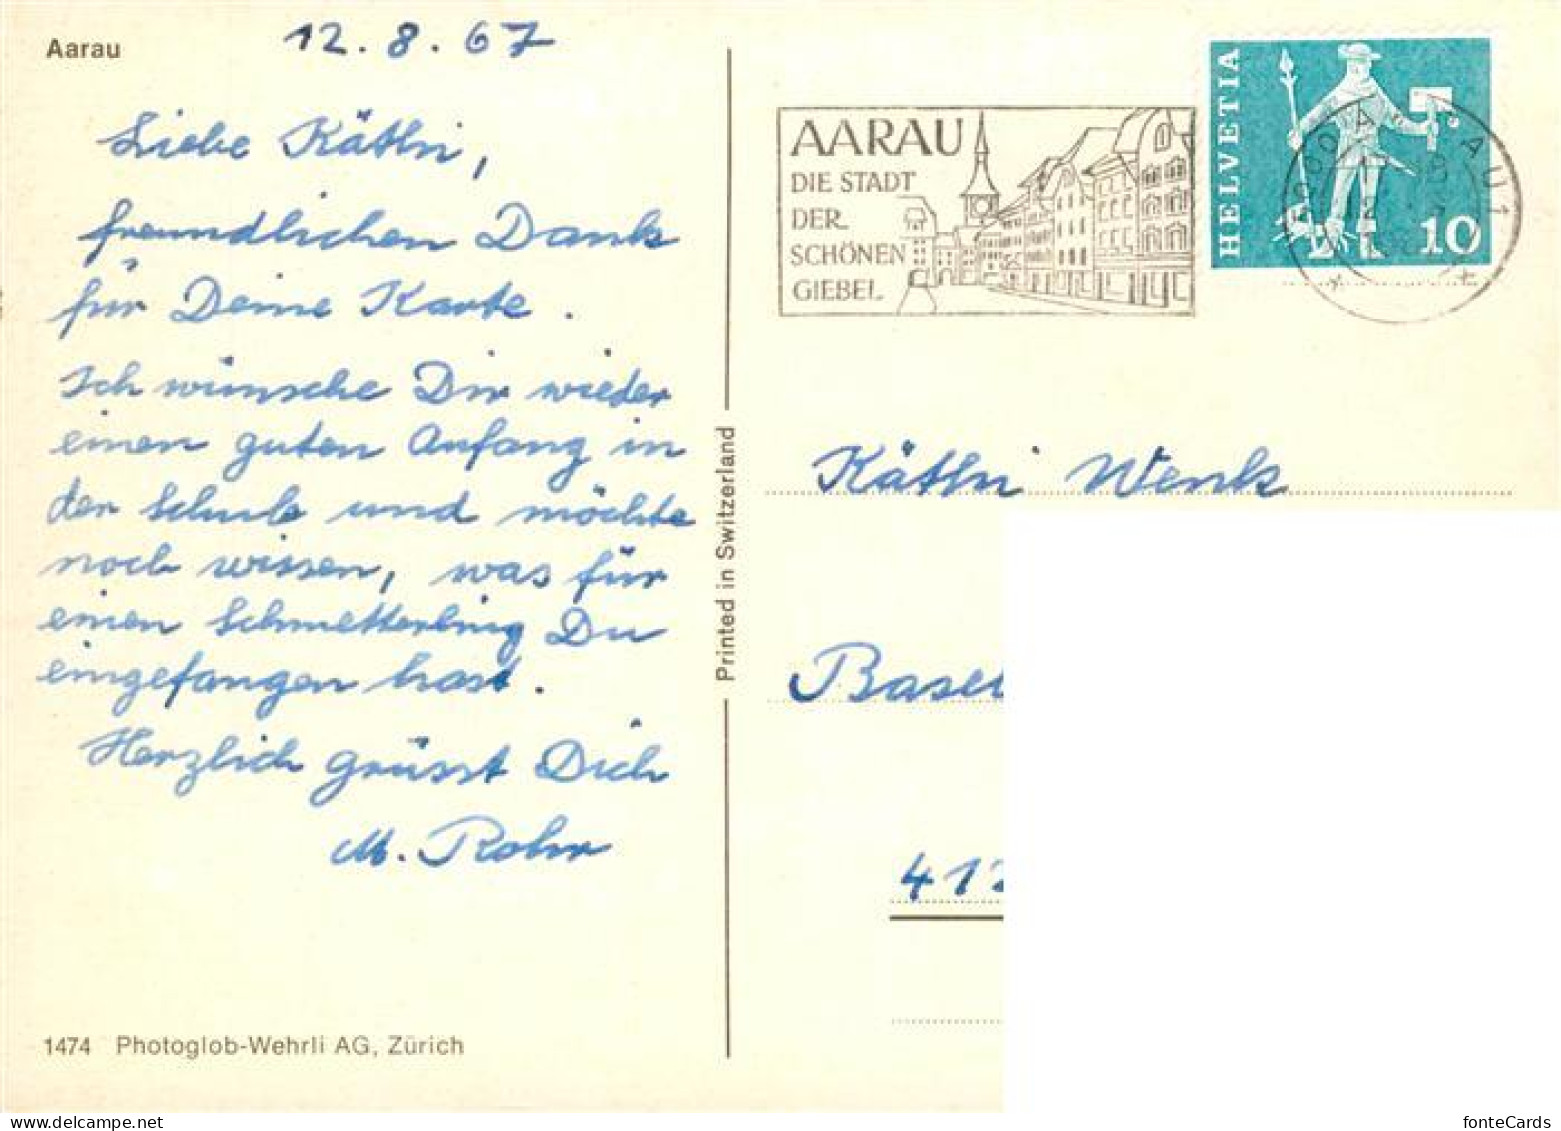 Aarau
12.8.67
Liebe Käthi,
freundlichen Dank
für Deine Karte.
Ich wünsche Dir wieder
einen guten Anfang in
der Schule und möchte
noch wissen, was für
einen Schmetterling Du
eingefangen hast.
Herzlich grüsst Dich
M. Rohr
1474 Photoglob-Wehrli AG, Zürich
Printed in Switzerland
AARAU
DIE STADT
DER
SCHÖNEN
GIEBEL
HELVETIA
10
AARAU 1
Käthi Wenk
Basel
412
www.delcampe.net
fonteCards